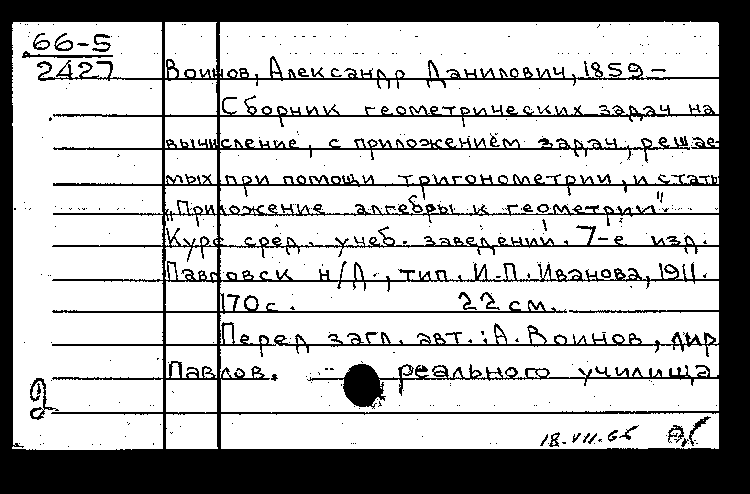 66-5
2427
Воинов, Александр Данилович, 1859 –
Сборник геометрических задач на
вычисление, с приложением задач, решае-
мых при помощи тригонометрии, и стать
„Приложение алгебры к геометрии".
Курс сред. учеб. заведений. 7-е изд.
Павловск н/Д., тип. И.П. Иванова, 1911.
170 с. 22 см.
Перед загл. авт.: А. Воинов, дир
Павлов. реального училища
2
18.VII.66